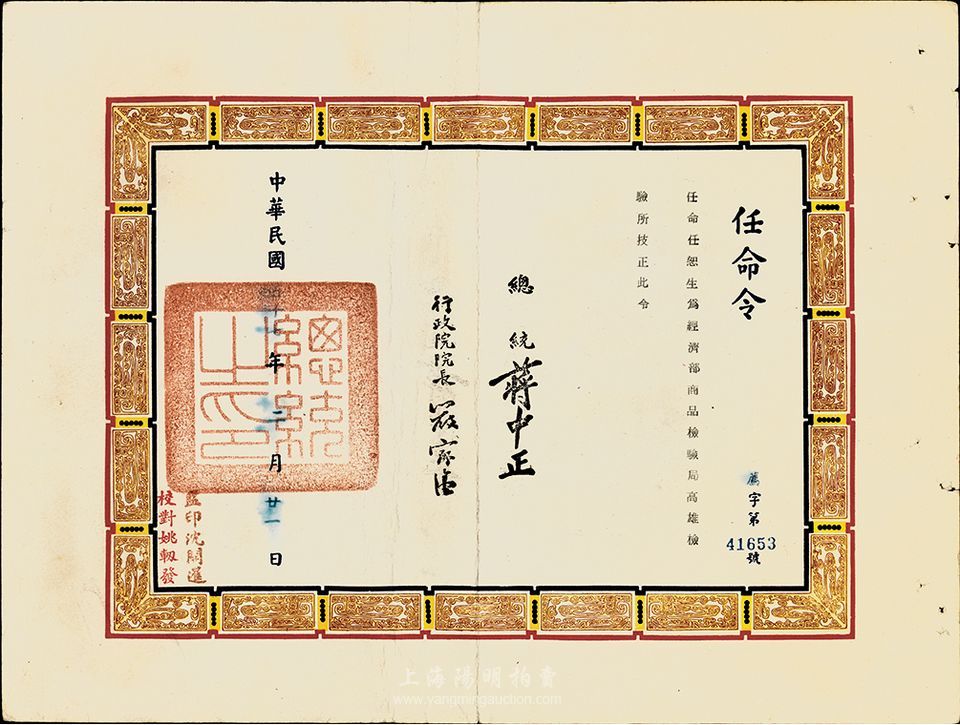 任命令
薦字第
41653
號
任命任恕生爲經濟部商品檢驗局高雄檢
驗所技正此令
總統蔣中正
行政院院長嚴家淦
中華民國 年二月廿一日
總統之印
監印沈開運
校對姚軔發
上海陽明拍賣
www.yangmingauction.com